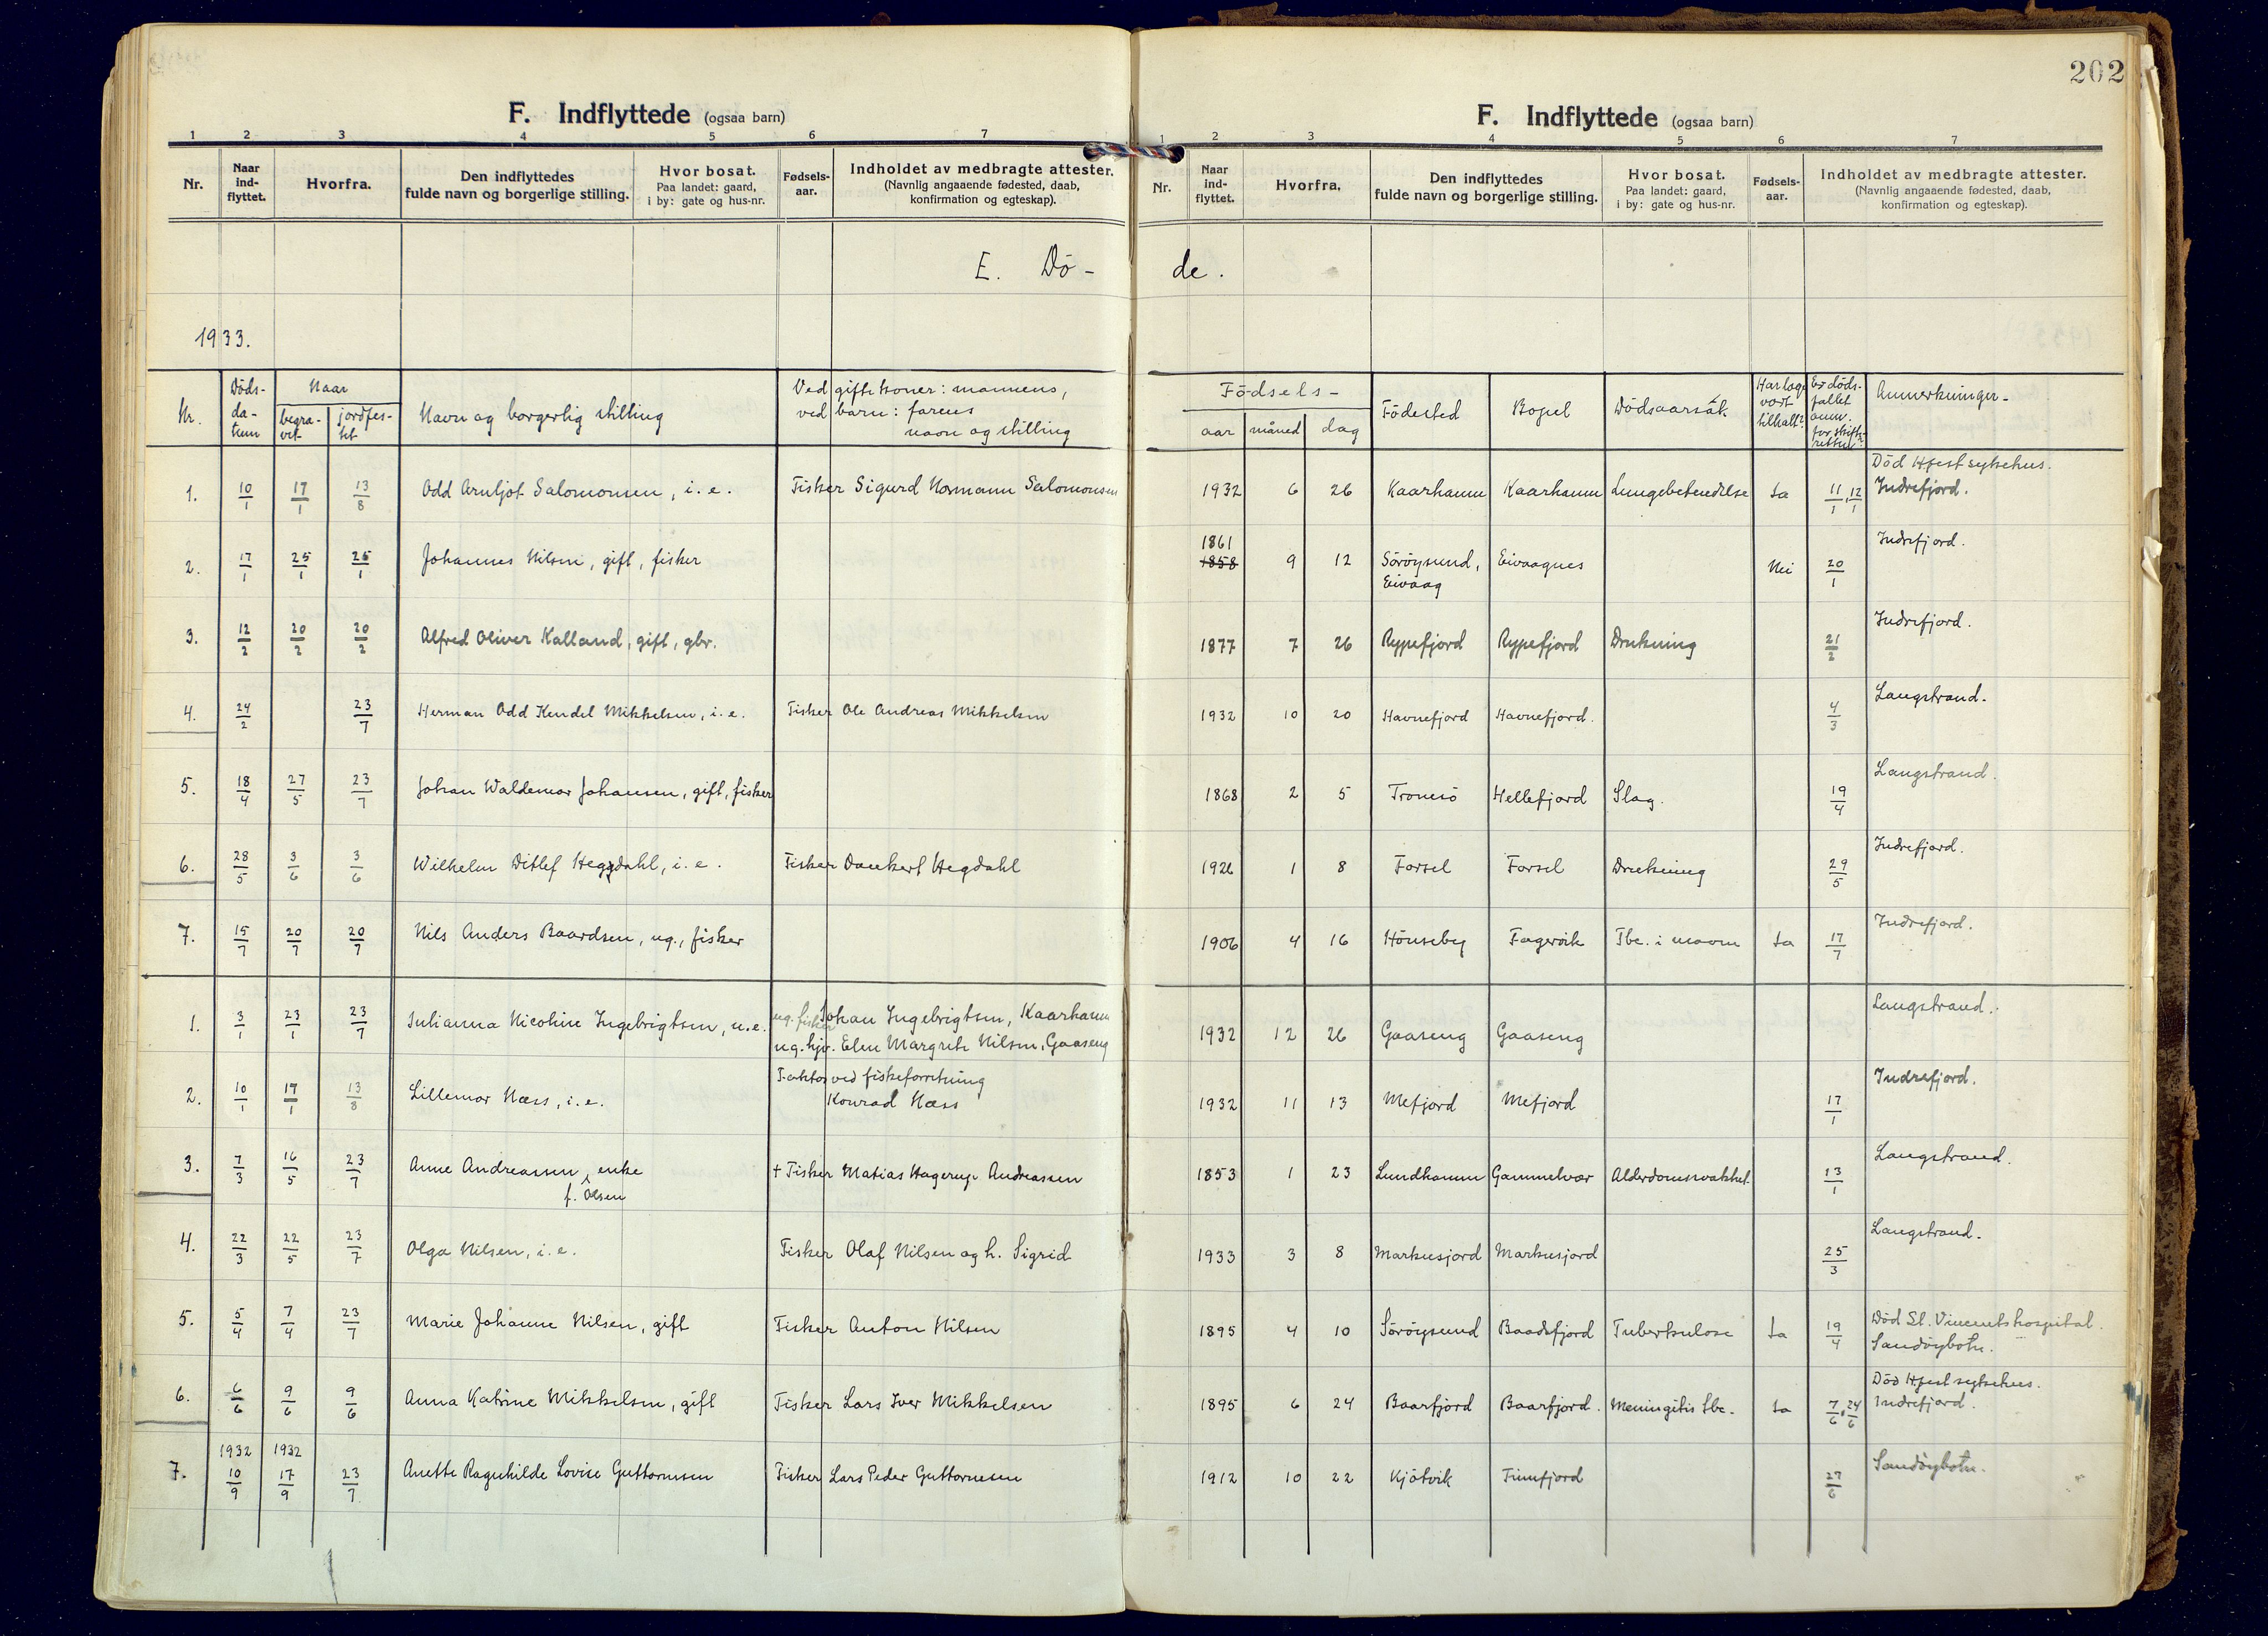 202
F. Indflyttede (ogsaa barn)
1 2 3 4 5 6 7
Nr.
Naar ind-flyttet.
Hvorfra.
Den indflyttedes fulde navn og borgerlige stilling.
Hvor bosat. Paa landet: gaard, i by: gate og hus-nr.
Fødsels-aar.
Indholdet av medbragte attester. (Navnlig angaaende fødested, daab, konfirmation og egteskap).
F. Indflyttede (ogsaa barn)
1 2 3 4 5 6 7
Nr.
Naar ind-flyttet.
Hvorfra.
Den indflyttedes fulde navn og borgerlige stilling.
Hvor bosat. Paa landet: gaard, i by: gate og hus-nr.
Fødsels-aar.
Indholdet av medbragte attester. (Navnlig angaaende fødested, daab, konfirmation og egteskap).
E. Dö- de.
1933.
Nr.
Döds-da-tum
Naar
begra-vet
jordfes-tet
Navn og borgerlig stilling
Ved gifte koner: mannens, ved barn: farens navn og stilling
Födsels-
aar måned dag
Födested
Bopel
Dödsaarsak
Har læge vært tilkalt?
Er döds-fallet anm. for skifte-retten?
Anmerkninger-
1. 10/1 17/1 13/8 Odd Arnljot Salomonsen, i.e. Fisker Sigurd Normann Salomonsen 1932 6 26 Kaarhamn Kaarhamn Lungebetendelse Ja 11/1, 12/1 Död Hfest sykehus. Indrefjord.
2. 17/1 25/1 25/1 Johannes Nilsen, gift, fisker 1861 1858 9 12 Söröysund, Eivaag Eivaagnes Nei 20/1 Indrefjord.
3. 12/2 20/2 20/2 Alfred Oliver Kalland, gift, gbr. 1877 7 26 Rypefjord Rypefjord Drukning 21/2 Indrefjord.
4. 24/2 23/7 Herman Odd Kendel Mikkelsen, i.e. Fisker Ole Andreas Mikkelsen 1932 10 20 Havnefjord Havnefjord. 4/3 Langstrand.
5. 18/4 27/5 23/7 Johan Waldemar Johansen, gift, fisker 1868 2 5 Tromsö Hellefjord Slag. 19/4 Langstrand.
6. 28/5 3/6 3/6 Wilhelm Ditlef Heggdahl, i.e. Fisker Dankert Hegdahl 1926 1 8 Forsol Forsol Drukning 29/5 Indrefjord.
7. 15/7 20/7 20/7 Nils Anders Baardsen, ug., fisker 1906 4 16 Hönseby Fagervik Tbc. i maven Ja 17/7 Indrefjord.
1. 3/1 23/1 23/7 Julianna Nicoline Ingebrigtsen, u.e. ug. fisker Johan Ingebrigtsen, Kaarhamn ug. hjv. Elen Margrete Nilsen, Gaaseng 1932 12 26 Gaaseng Gaaseng Langstrand.
2. 10/1 17/1 13/8 Lillemor Næss, i.e. Faktor ved fiskeforretning Konrad Næss 1932 11 13 Mefjord Mefjord 17/1 Indrefjord.
3. 7/3 16/5 23/7 Anne Andreassen, f. Olsen enke + Fisker Matias Hagerup Andreassen 1853 1 23 Lundhamn Gammelvær Alderdomsvakhet. 13/1 Langstrand.
4. 22/3 22/5 23/7 Olga Nilsen, i.e. Fisker Olaf Nilsen og h. Sigrid 1933 3 8 Markusjord Markusjord 25/3 Langstrand.
5. 5/4 7/4 23/7 Marie Johanne Nilsen, gift Fisker Anton Nilsen 1895 4 10 Söröysund Baadsfjord Tuberkulose Ja 19/4 Död St. Vincents hospital. Sandöybotn.
6. 6/6 9/6 9/6 Anna Katrine Mikkelsen, gift Fisker Lars Iver Mikkelsen 1895 6 24 Baarfjord Baarfjord. Meningitis tbc. Ja 7/6, 24/6 Död Hfest sykehus. Indrefjord.
7. 1932 10/9 1932 17/9 23/7 Anette Ragnhilde Lovise Guttormsen Fisker Lars Peder Guttormsen 1912 10 22 Kjötvik Finnfjord 27/6 Sandöybotn.